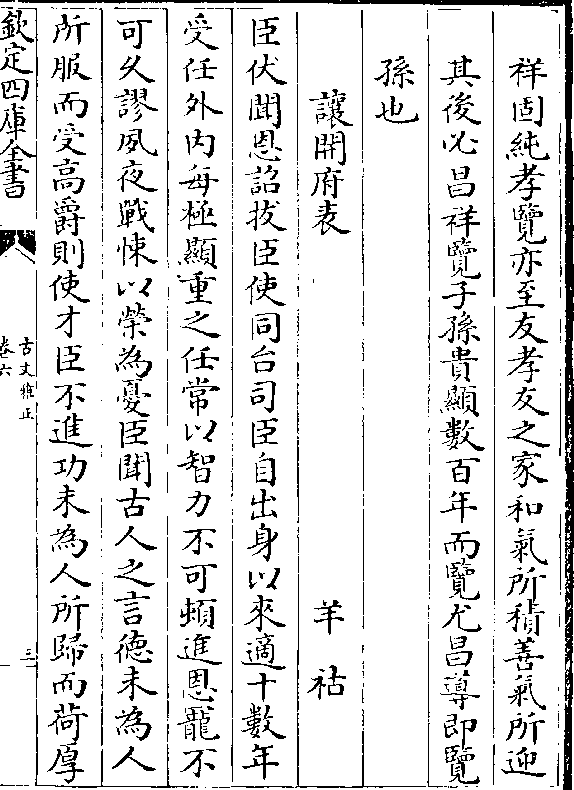 祥固純孝覽亦至友孝友之家和氣所積善氣所迎
其後必昌祥覽子孫貴顯數百年而覽尤昌導即覽
孫也
讓開府表 羊祜
臣伏聞恩詔拔臣使同台司臣自出身以來適十數年
受任外内每極顯重之任常以智力不可頓進恩寵不
可久謬夙夜戰悚以榮為憂臣聞古人之言德未為人
所服而受高爵則使才臣不進功未為人所歸而荷厚
欽定四庫全書
古文雅正
卷六
三